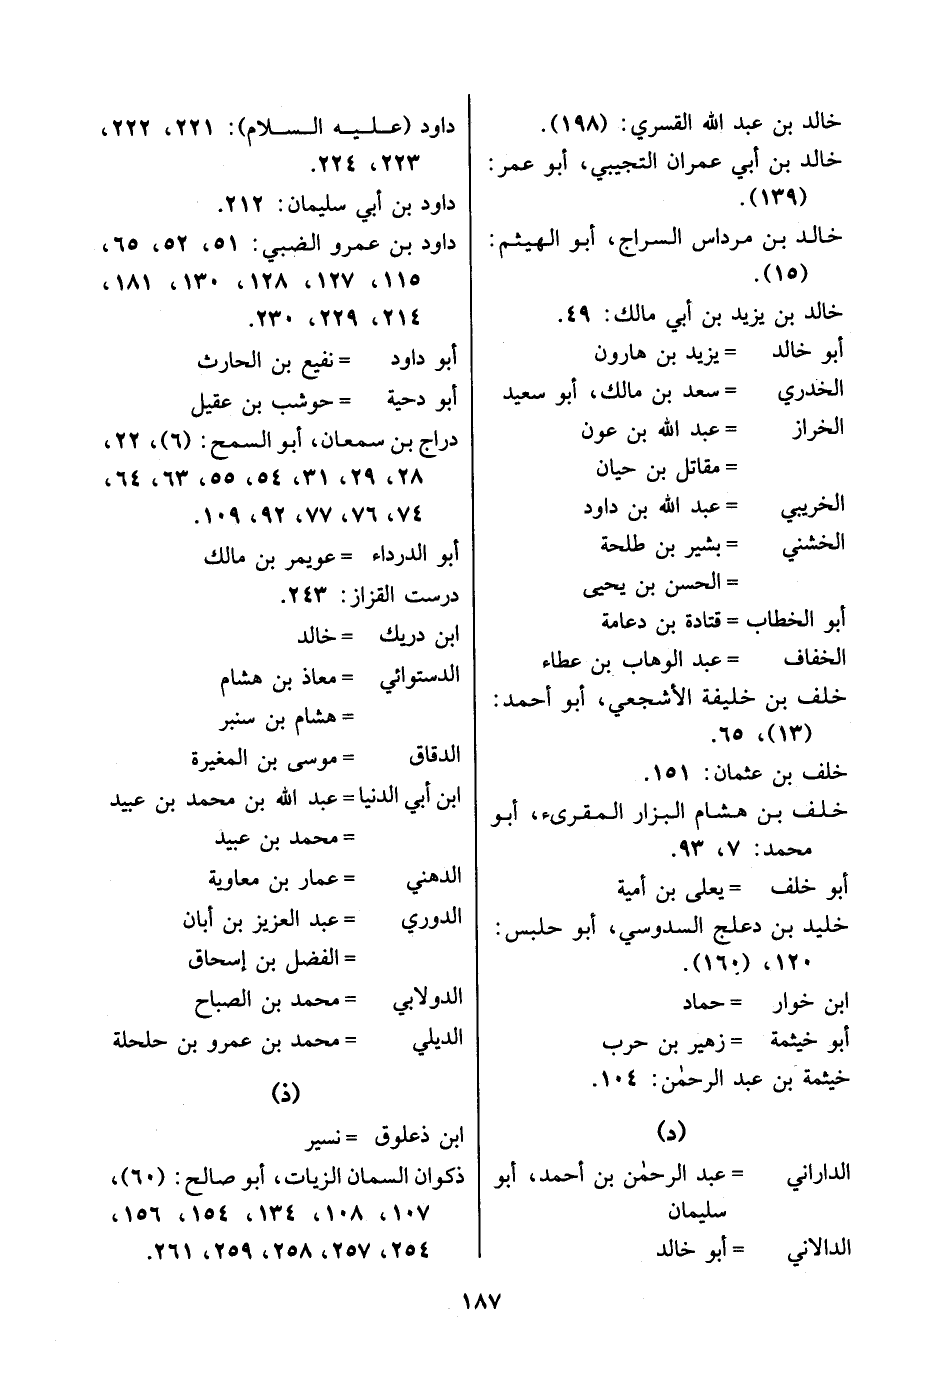 خالد بن عبد الله القسري: (١٩٨).
خالد بن أبي عمران التجيبي، أبو عمر:
(١٣٩).
خالد بن مرداس السراج، أبو الهيثم:
(١٥).
خالد بن يزيد بن أبي مالك: ٤٩.
أبو خالد = يزيد بن هارون
الخدري = سعد بن مالك، أبو سعيد
الخراز = عبد الله بن عون
= مقاتل بن حيان
الخريبي = عبد الله بن داود
الخشني = بشير بن طلحة
= الحسن بن يحيى
أبو الخطاب = قتادة بن دعامة
الخفاف = عبد الوهاب بن عطاء
خلف بن خليفة الأشجعي، أبو أحمد:
(١٣)، ٦٥.
خلف بن عثمان: ١٥١.
خلف بن هشام البزار المقرىء، أبو
محمد: ٧، ٩٣.
أبو خلف = يعلى بن أمية
خليد بن دعلج السدوسي، أبو حلبس:
١٢٠، (١٦٠).
ابن خوار = حماد
أبو خيثمة = زهير بن حرب
خيثمة بن عبد الرحمٰن: ١٠٤.
(د)
الداراني = عبد الرحمٰن بن أحمد، أبو
سليمان
الدالاني = أبو خالد
داود (عليه السلام): ٢٢١، ٢٢٢،
٢٢٣، ٢٢٤.
داود بن أبي سليمان: ٢١٢.
داود بن عمرو الضبي: ٥١، ٥٢، ٦٥،
١١٥، ١٢٧، ١٢٨، ١٣٠، ١٨١،
٢١٤، ٢٢٩، ٢٣٠.
أبو داود = نفيع بن الحارث
أبو دحية = حوشب بن عقيل
دراج بن سمعان، أبو السمح: (٦)، ٢٢،
٢٨، ٢٩، ٣١، ٥٤، ٥٥، ٦٣، ٦٤،
٧٤، ٧٦، ٧٧، ٩٢، ١٠٩.
أبو الدرداء = عويمر بن مالك
درست القزاز: ٢٤٣.
ابن دريك = خالد
الدستوائي = معاذ بن هشام
= هشام بن سنبر
الدقاق = موسى بن المغيرة
ابن أبي الدنيا = عبد الله بن محمد بن عبيد
= محمد بن عبيد
الدهني = عمار بن معاوية
الدوري = عبد العزيز بن أبان
= الفضل بن إسحاق
الدولابي = محمد بن الصباح
الديلي = محمد بن عمرو بن حلحلة
(ذ)
ابن ذعلوق = نسير
ذكوان السمان الزيات، أبو صالح: (٦٠)،
١٠٧، ١٠٨، ١٣٤، ١٥٤، ١٥٦،
٢٥٤، ٢٥٧، ٢٥٨، ٢٥٩، ٢٦١.
١٨٧